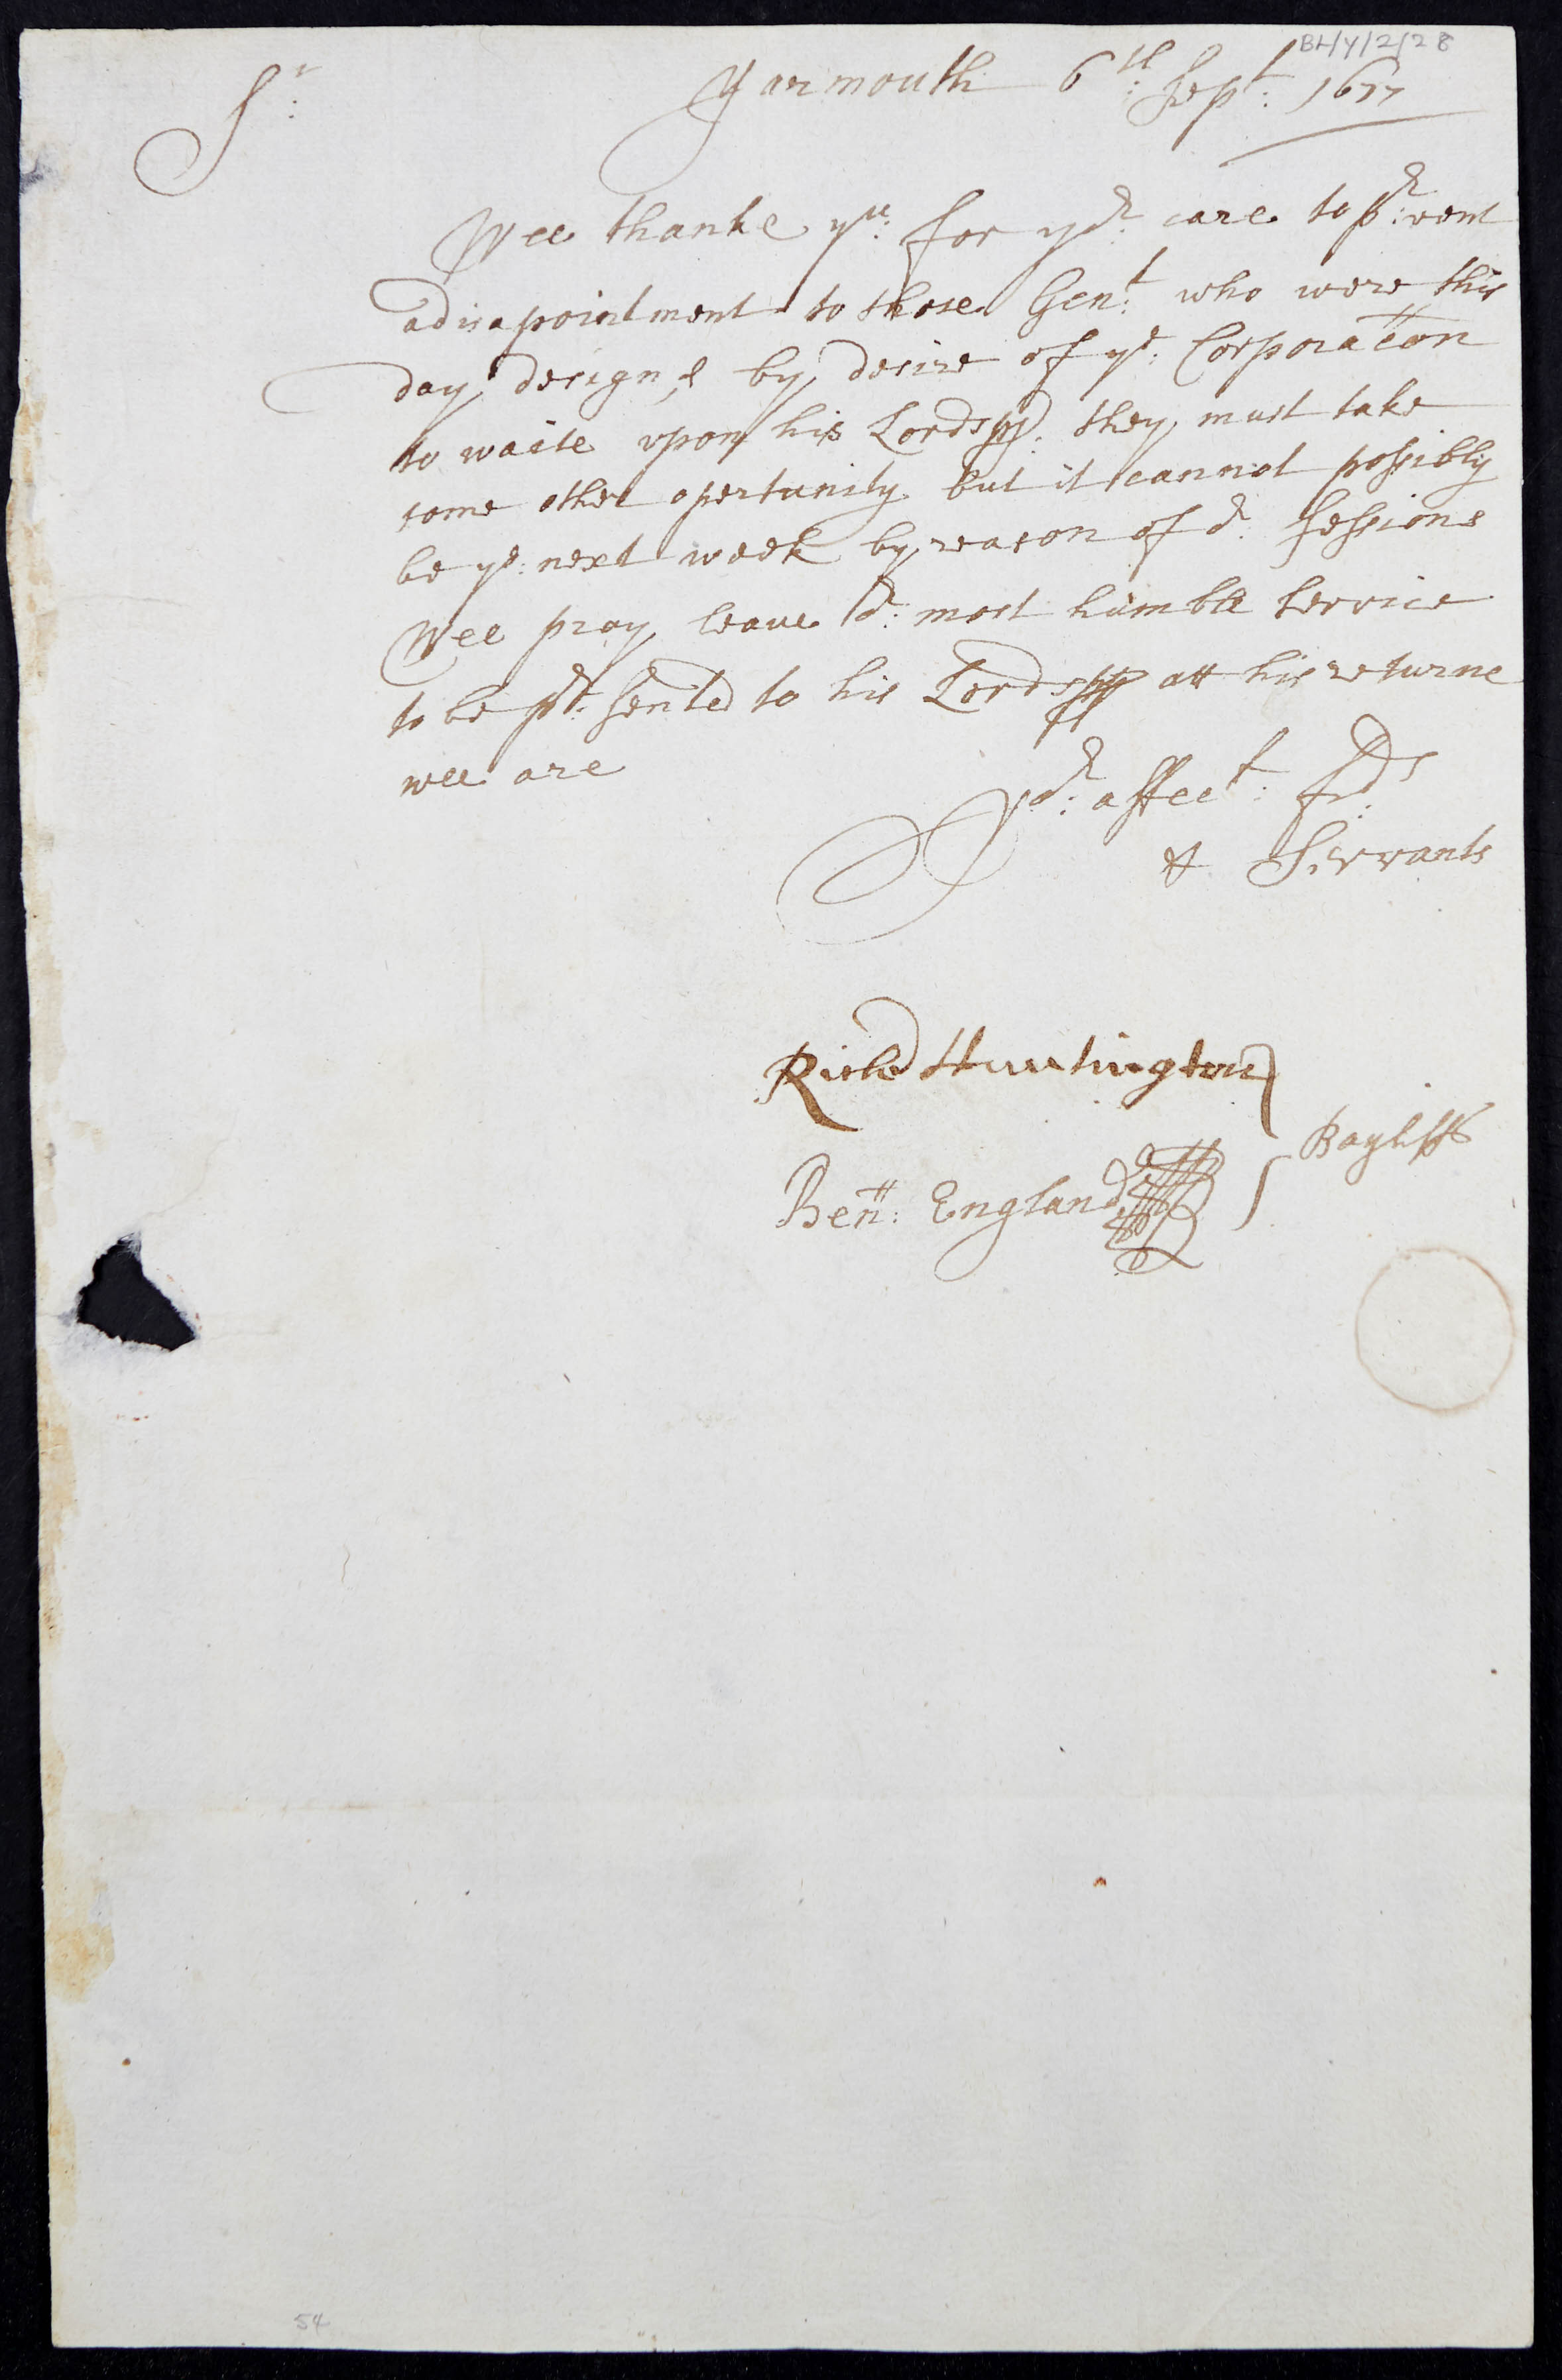 BL/Y/2/28
Sr: Yarmouth 6th: Sept: 1677
Wee thanke yu: for yor: care to pr:vent
a disapointment to those Gent: who were this
day design,d by desire of ye: Corporacon
to waite vpon his Lordspp: they must take
some other opertunity but it cannot possibly
be ye: next week by reason of or: Sessions
Wee pray leave or: most humble Service
to be pre:sented to his Lordspp att his returne
wee are
Yor: affect: frds:
& Servants
Richd Huntington
Bayliffs
Ben: England
54